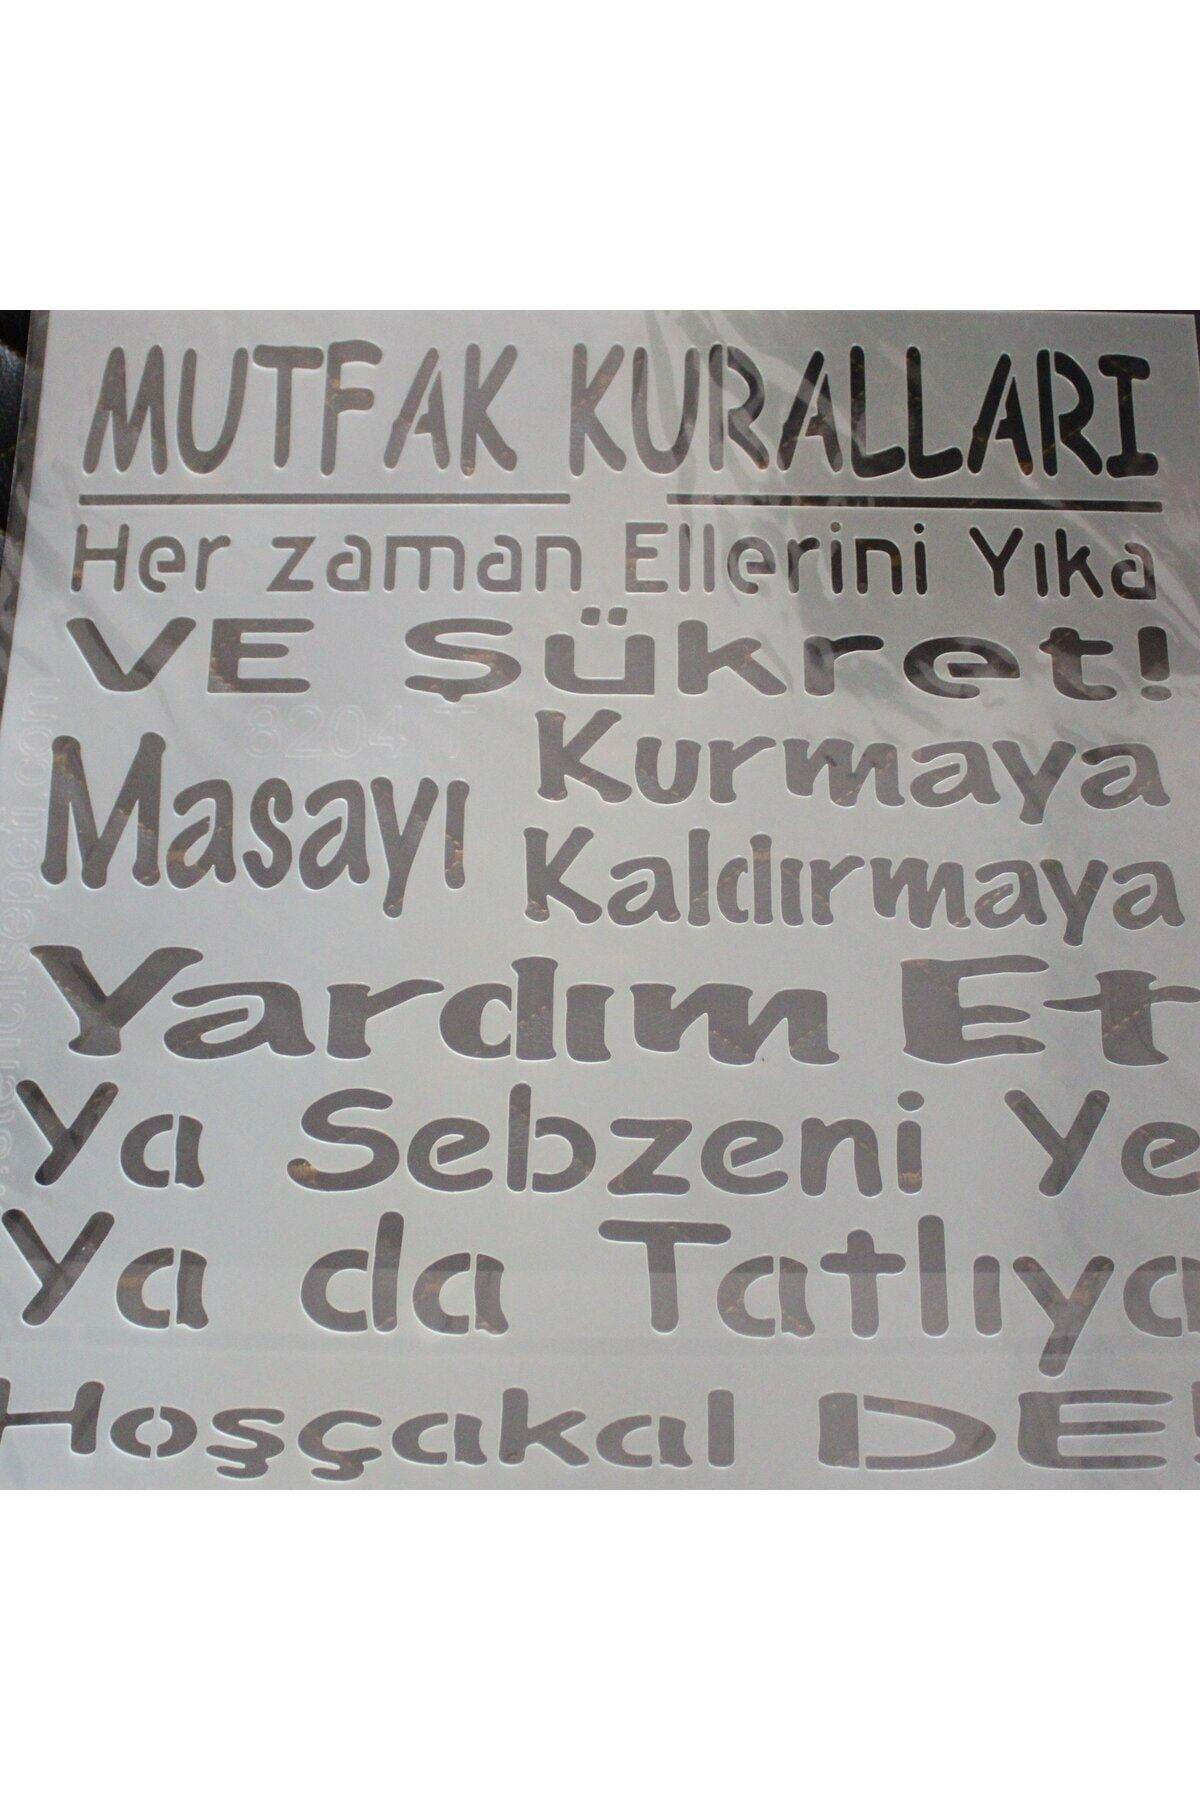 MUTFAK KURALLARI
Her zaman Ellerini Yıka
VE Şükret!
Masayı Kurmaya
Kaldırmaya
Yardım Et
Ya Sebzeni Ye
Ya da Tatlıya
Hoşçakal DE!
8204
stencilsepeti.com